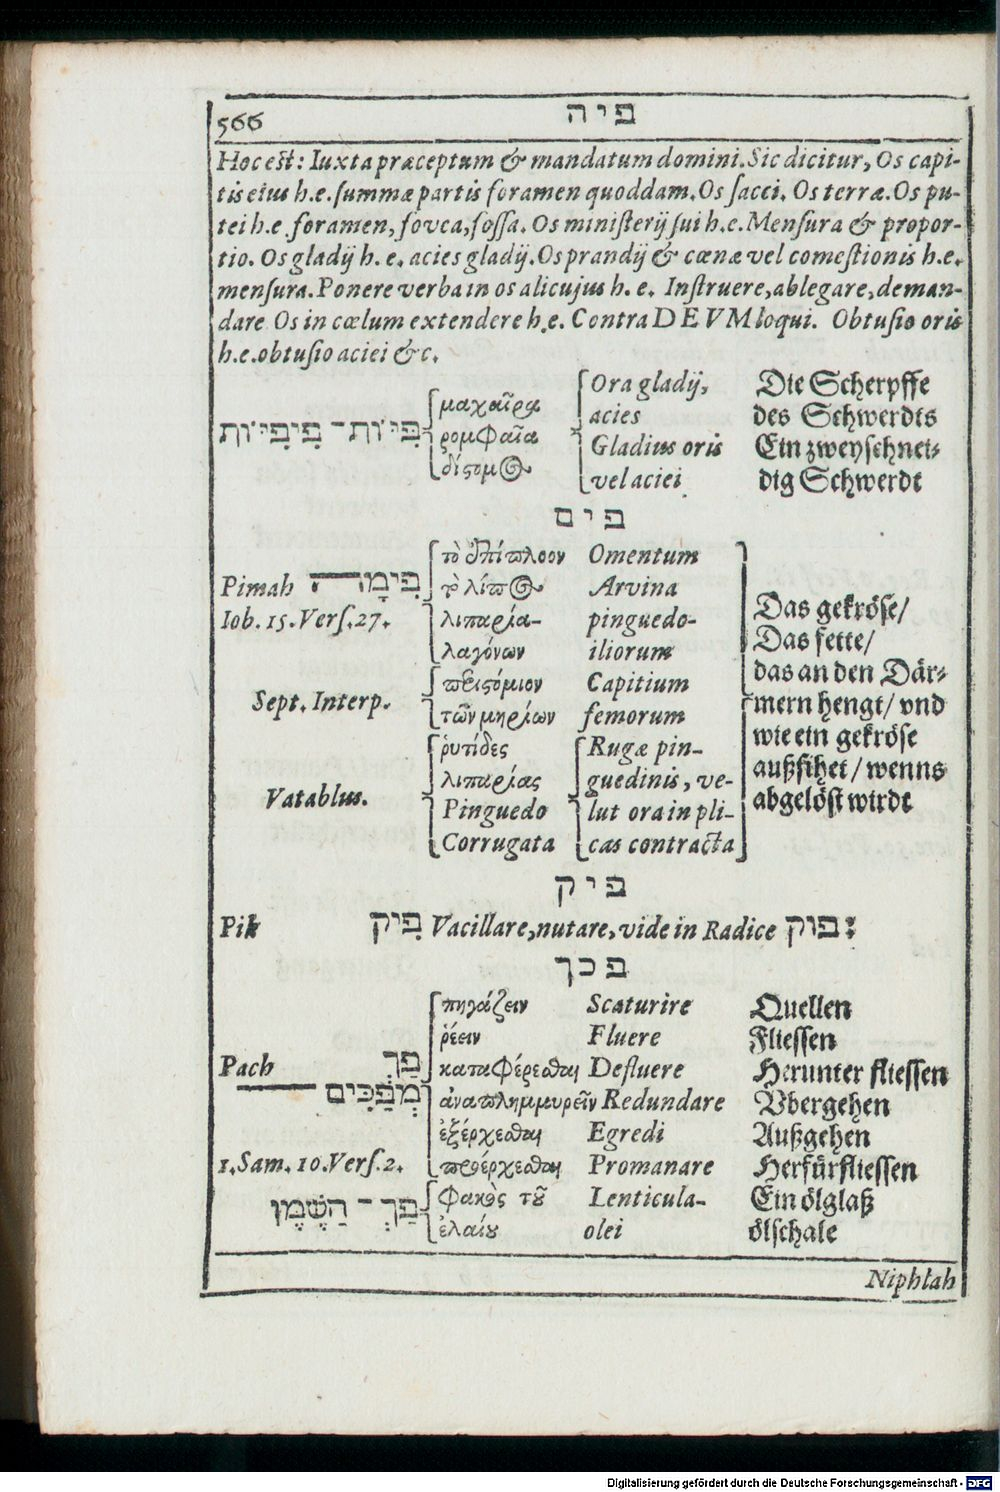 566 פיה
Hoc est: Iuxta præceptum & mandatum domini. Sic dicitur, Os capi-
tis eius h.e. summæ partis foramen quoddam. Os sacci. Os terræ. Os pu-
tei h.e. foramen, fovea, fossa. Os ministerij sui h.e. Mensura & propor-
tio. Os gladij h. e. acies gladij. Os prandij & cœnæ vel comestionis h.e.
mensura. Ponere verba in os alicujus h. e. Instruere, ablegare, deman-
dare Os in cœlum extendere h.e. Contra DEVM loqui. Obtusio oris
h.e. obtusio aciei &c.
μαχαῖρα Ora gladij, Die Scherpffe
פִּיּוֹת־ פִּיפִיּוֹת acies des Schwerdts
ρομφαῖα Gladius oris Ein zweyschnei-
δίςομος vel aciei dig Schwerdt
פים
τὸ ἐπίπλοον Omentum
Pimah פִּימָה τὸ λίπος Arvina Das gekröse/
Iob. 15. Vers. 27. λιπαρία- pinguedo- Das fette/
λαγόνων iliorum das an den Där-
περιςόμιον Capitium mern hengt/ vnd
Sept. Interp. τῶν μηρίων femorum wie ein gekröse
ῥυτίδες Rugæ pin- außsihet/ wenns
λιπαρίας guedinis, ve- abgelöst wirdt
Vatablus. Pinguedo lut ora in pli-
Corrugata cas contracta
פיק
Pik פִּיק Vacillare, nutare, vide in Radice פוק:
פכך
πηγάζειν Scaturire Quellen
ῥέειν Fluere Fliessen
Pach פַּךְ καταφέρεσθαι Defluere Herunter fliessen
מְפַכִּים ἀναπλημμυρεῖν Redundare Vbergehen
ἐξέρχεσθαι Egredi Außgehen
1. Sam. 10. Vers. 2. προέρχεσθαι Promanare Herfürfliessen
פַּךְ־ הַשֶּׁמֶן φακὸς τοῦ Lenticula- Ein ölglaß
ἐλαίου olei ölschale
Niphlah
Digitalisierung gefördert durch die Deutsche Forschungsgemeinschaft - DFG